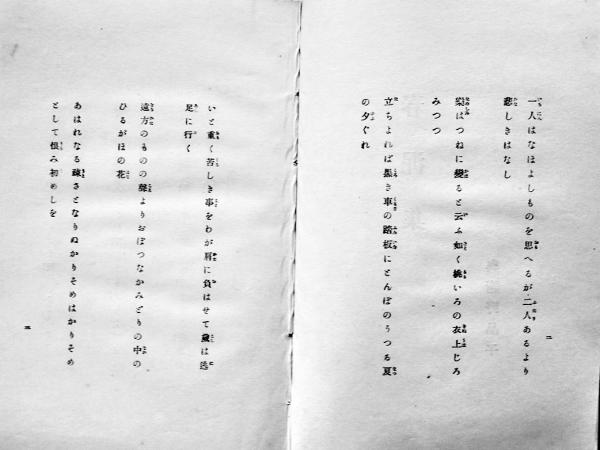 一人はなほよしものを思へるが二人あるより
悲しきはなし
樂はつねに變ると云ふ如く桃いろの衣上じろ
みつつ
立ちよれば黒き車の踏板にとんぼのうつる夏
の夕ぐれ
二
いと重く苦しき事をわが肩に負はせて歳は逃
足に行く
遠方のものの聲よりおぼつかなみどりの中の
ひるがほの花
あはれなる疎さとなりぬかりそめはかりそめ
として恨み初めしを
三